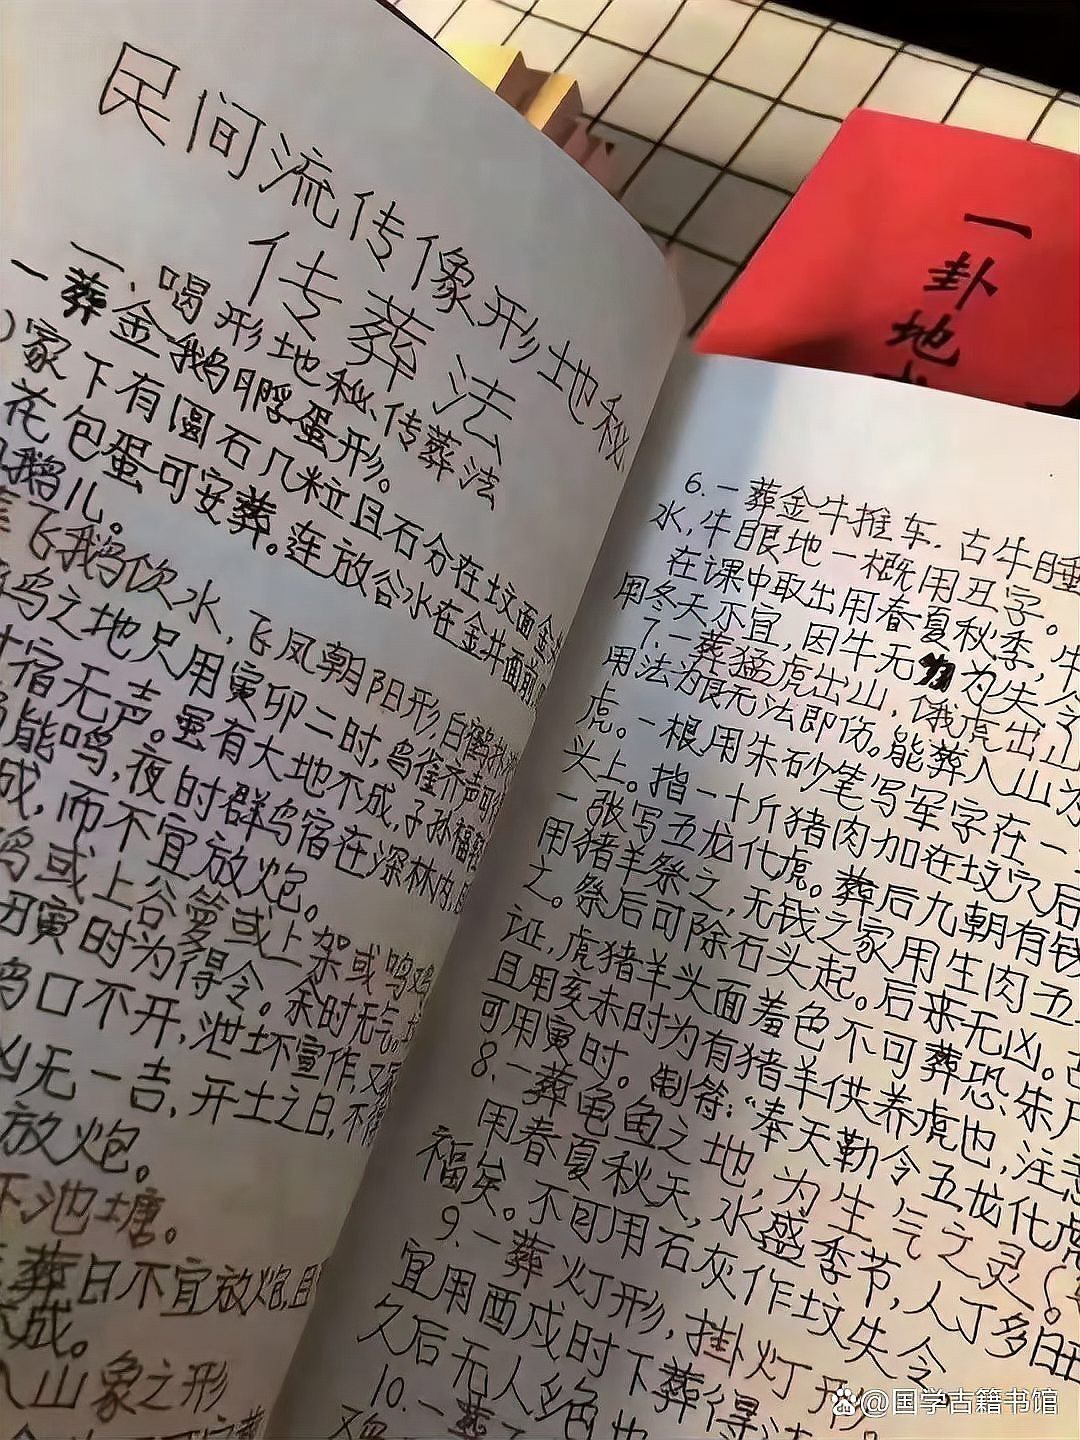 民间流传像形地秘
传葬法
一.喝形地秘、传葬法
一葬金鹅孵蛋形。
家下有圆石几粒且石分在坟面金
花包蛋可安葬。连放谷水在金井面前
鹅儿。
飞鹅饮水,飞凤朝阳形,白鹤
鸟之地只用寅卯二时,鸟雀齐声可
宿无声。虽有大地不成,子孙福
能鸣,夜时群鸟宿在深林内,
成,而不宜放炮。
鸡或上谷箩或上架或鸣
丑寅时为得令。余时无气。
鸟口不开,泄坏宣作,又
凶无一吉,开土之日,不
放炮。
下池塘。
葬日不宜放炮,且
成。
入山象之形
6.一葬金牛推车.古牛睡
水,牛眼地一概用丑字。
在课中取出用春夏秋季,牛
用冬天不宜,因牛无 为失令
7.一葬猛虎出山,饿虎出山
用法为限无法即伤。能葬入山
虎。一根用朱砂笔写军字在一
头上。指一十斤猪肉加在坟穴后
一张写五龙化虎。葬后九朝有钱
用猪羊祭之,无钱之家用生肉五
之。祭后可除石头起。后来无凶。
证,虎猪羊头面羞色不可葬恐、朱
且用亥未时为有猪羊供养虎也,注
可用寅时。制符:“奉天勒令五龙化虎
8.一葬龟鱼之地,为生气之灵(
用春夏秋天,水盛季节,人丁多旺
福矣。不可用石灰作坟失令。
9.一葬灯形,挂灯形。
宜用酉戌时下葬得法
久后无人多
10.一葬
一卦地
@国学古籍书馆